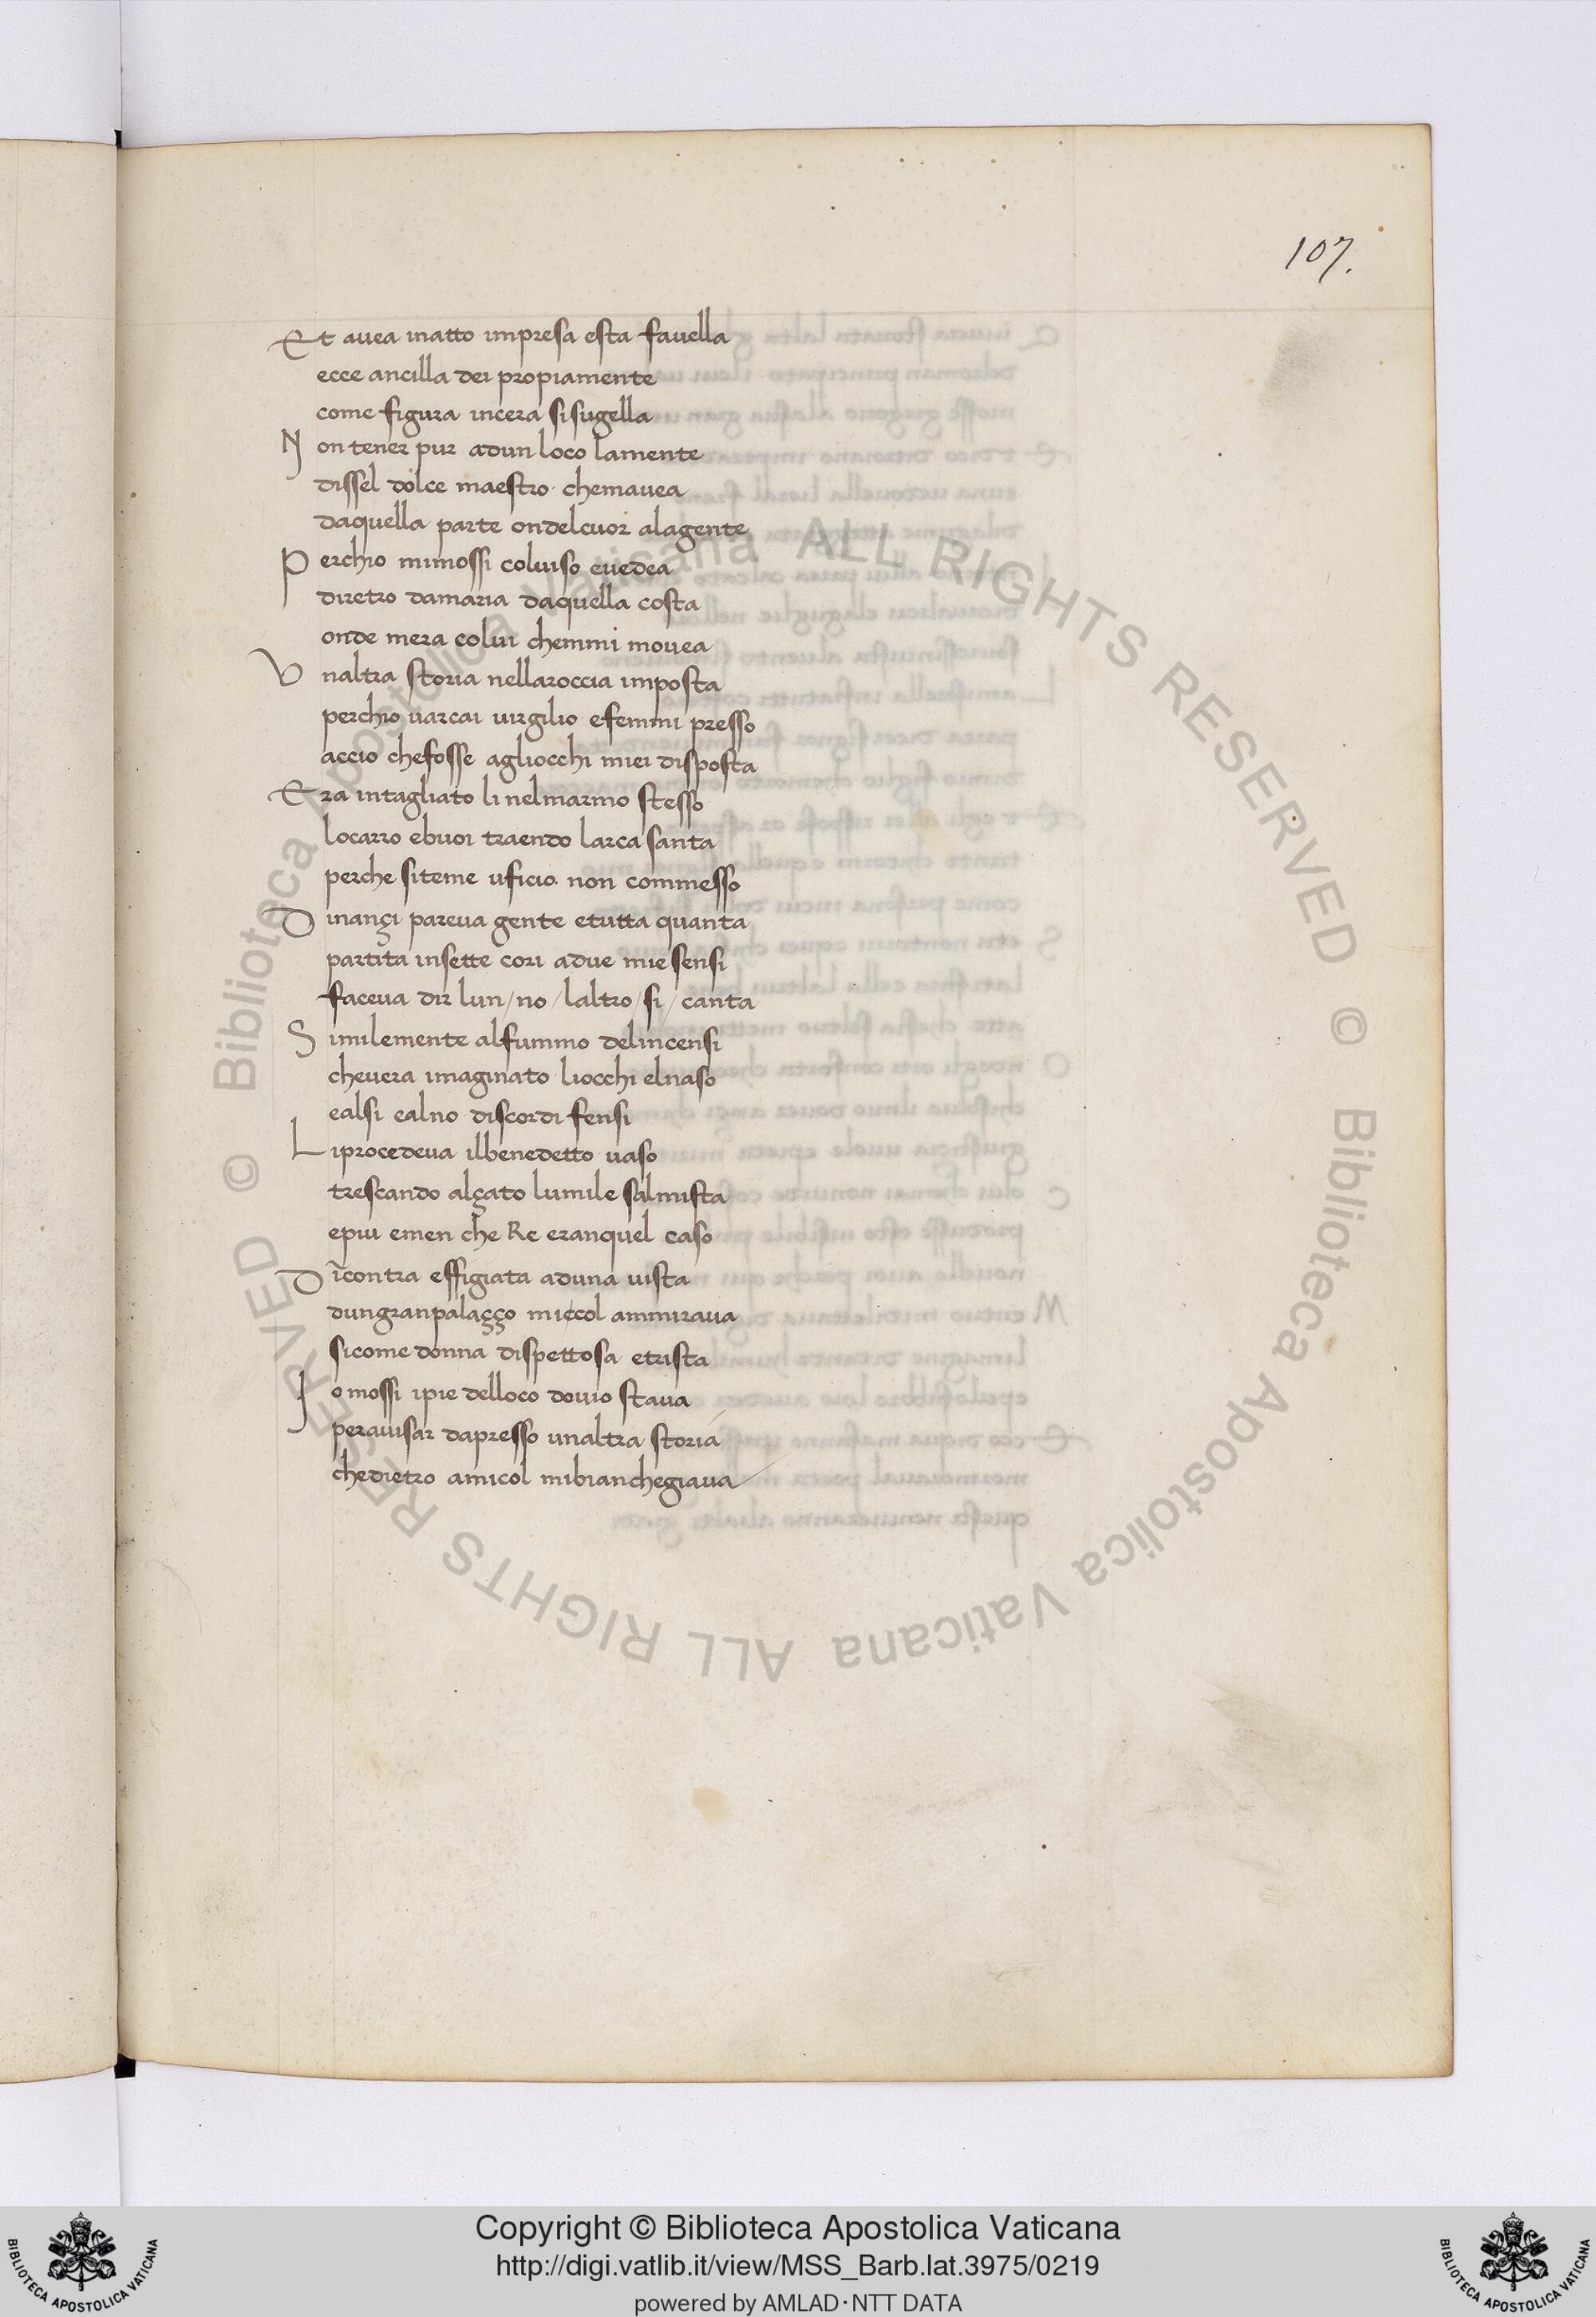 107.
Et auea inatto impresa esta fauella
ecce ancilla dei propiamente
come figura incera sisugella
Non tener pur adun loco lamente
dissel dolce maestro chemauea
daquella parte ondelcuor alagente
Perchio mimossi coluiso euedea
diretro damaria daquella costa
onde mera colui chemmi mouea
Vnaltra storia nellaroccia imposta
perchio uarcai uirgilio efemmi presso
accio chefosse agliocchi miei disposta
Era intagliato li nelmarmo stesso
locarro ebuoi traendo larca santa
perche siteme uficio non commesso
Dinançi pareua gente etutta quanta
partita insette cori adue mie sensi
faceua dir lun/no/laltro/si/canta
Similemente alfummo delincensi
cheuera imaginato liocchi elnaso
ealsi ealno discordi fensi
Liprocedeua ilbenedetto uaso
trescando alçato lumile salmista
epiu emen che Re eranquel caso
Dĩcontra effigiata aduna uista
dungranpalaçço miccol ammiraua
sicome donna dispettosa etrista
Iomossi ipie delloco douio staua
perauisar dapresso unaltra storia
chedietro amicol mibianchegiaua
Copyright © Biblioteca Apostolica Vaticana
http://digi.vatlib.it/view/MSS_Barb.lat.3975/0219
powered by AMLAD·NTT DATA
BIBLIOTECA APOSTOLICA VATICANA
BIBLIOTECA APOSTOLICA VATICANA
© Biblioteca Apostolica Vaticana ALL RIGHTS RESERVED © Biblioteca Apostolica Vaticana ALL RIGHTS RESERVED